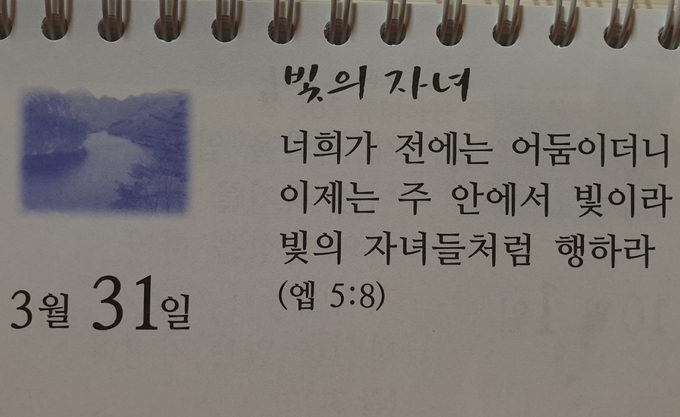 빛의 자녀
너희가 전에는 어둠이더니
이제는 주 안에서 빛이라
빛의 자녀들처럼 행하라
(엡 5:8)
3월 31일